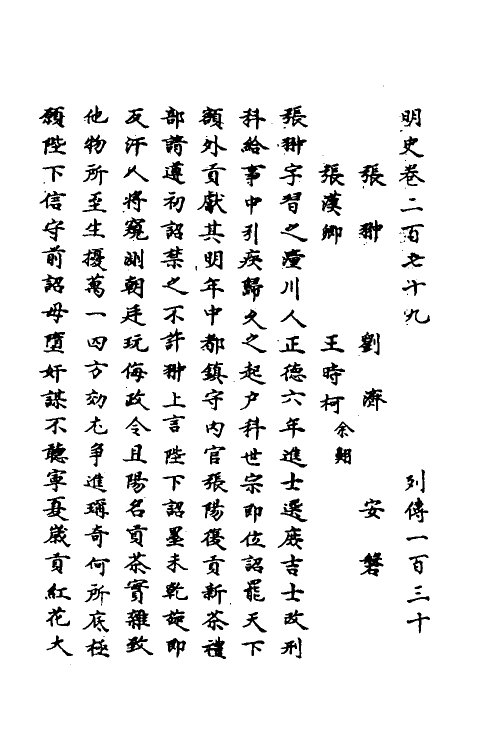 明史卷二百七十九 列傳一百三十
張翀 劉濟 安磐
張漢卿 王時柯 余翱
張翀字習之潼川人正德六年進士選庶吉士改刑
科給事中引疾歸久之起户科世宗即位詔罷天下
額外貢獻其明年中都鎮守内官張陽復貢新茶禮
部請遵初詔禁之不許翀上言陛下詔墨未乾旋即
反汗人將窺測朝廷玩侮政令且陽名貢茶實雜致
他物所至生擾萬一四方効尤爭進瓖奇何所底極
願陛下信守前詔毋墮奸謀不聽寧夏歲貢紅花大